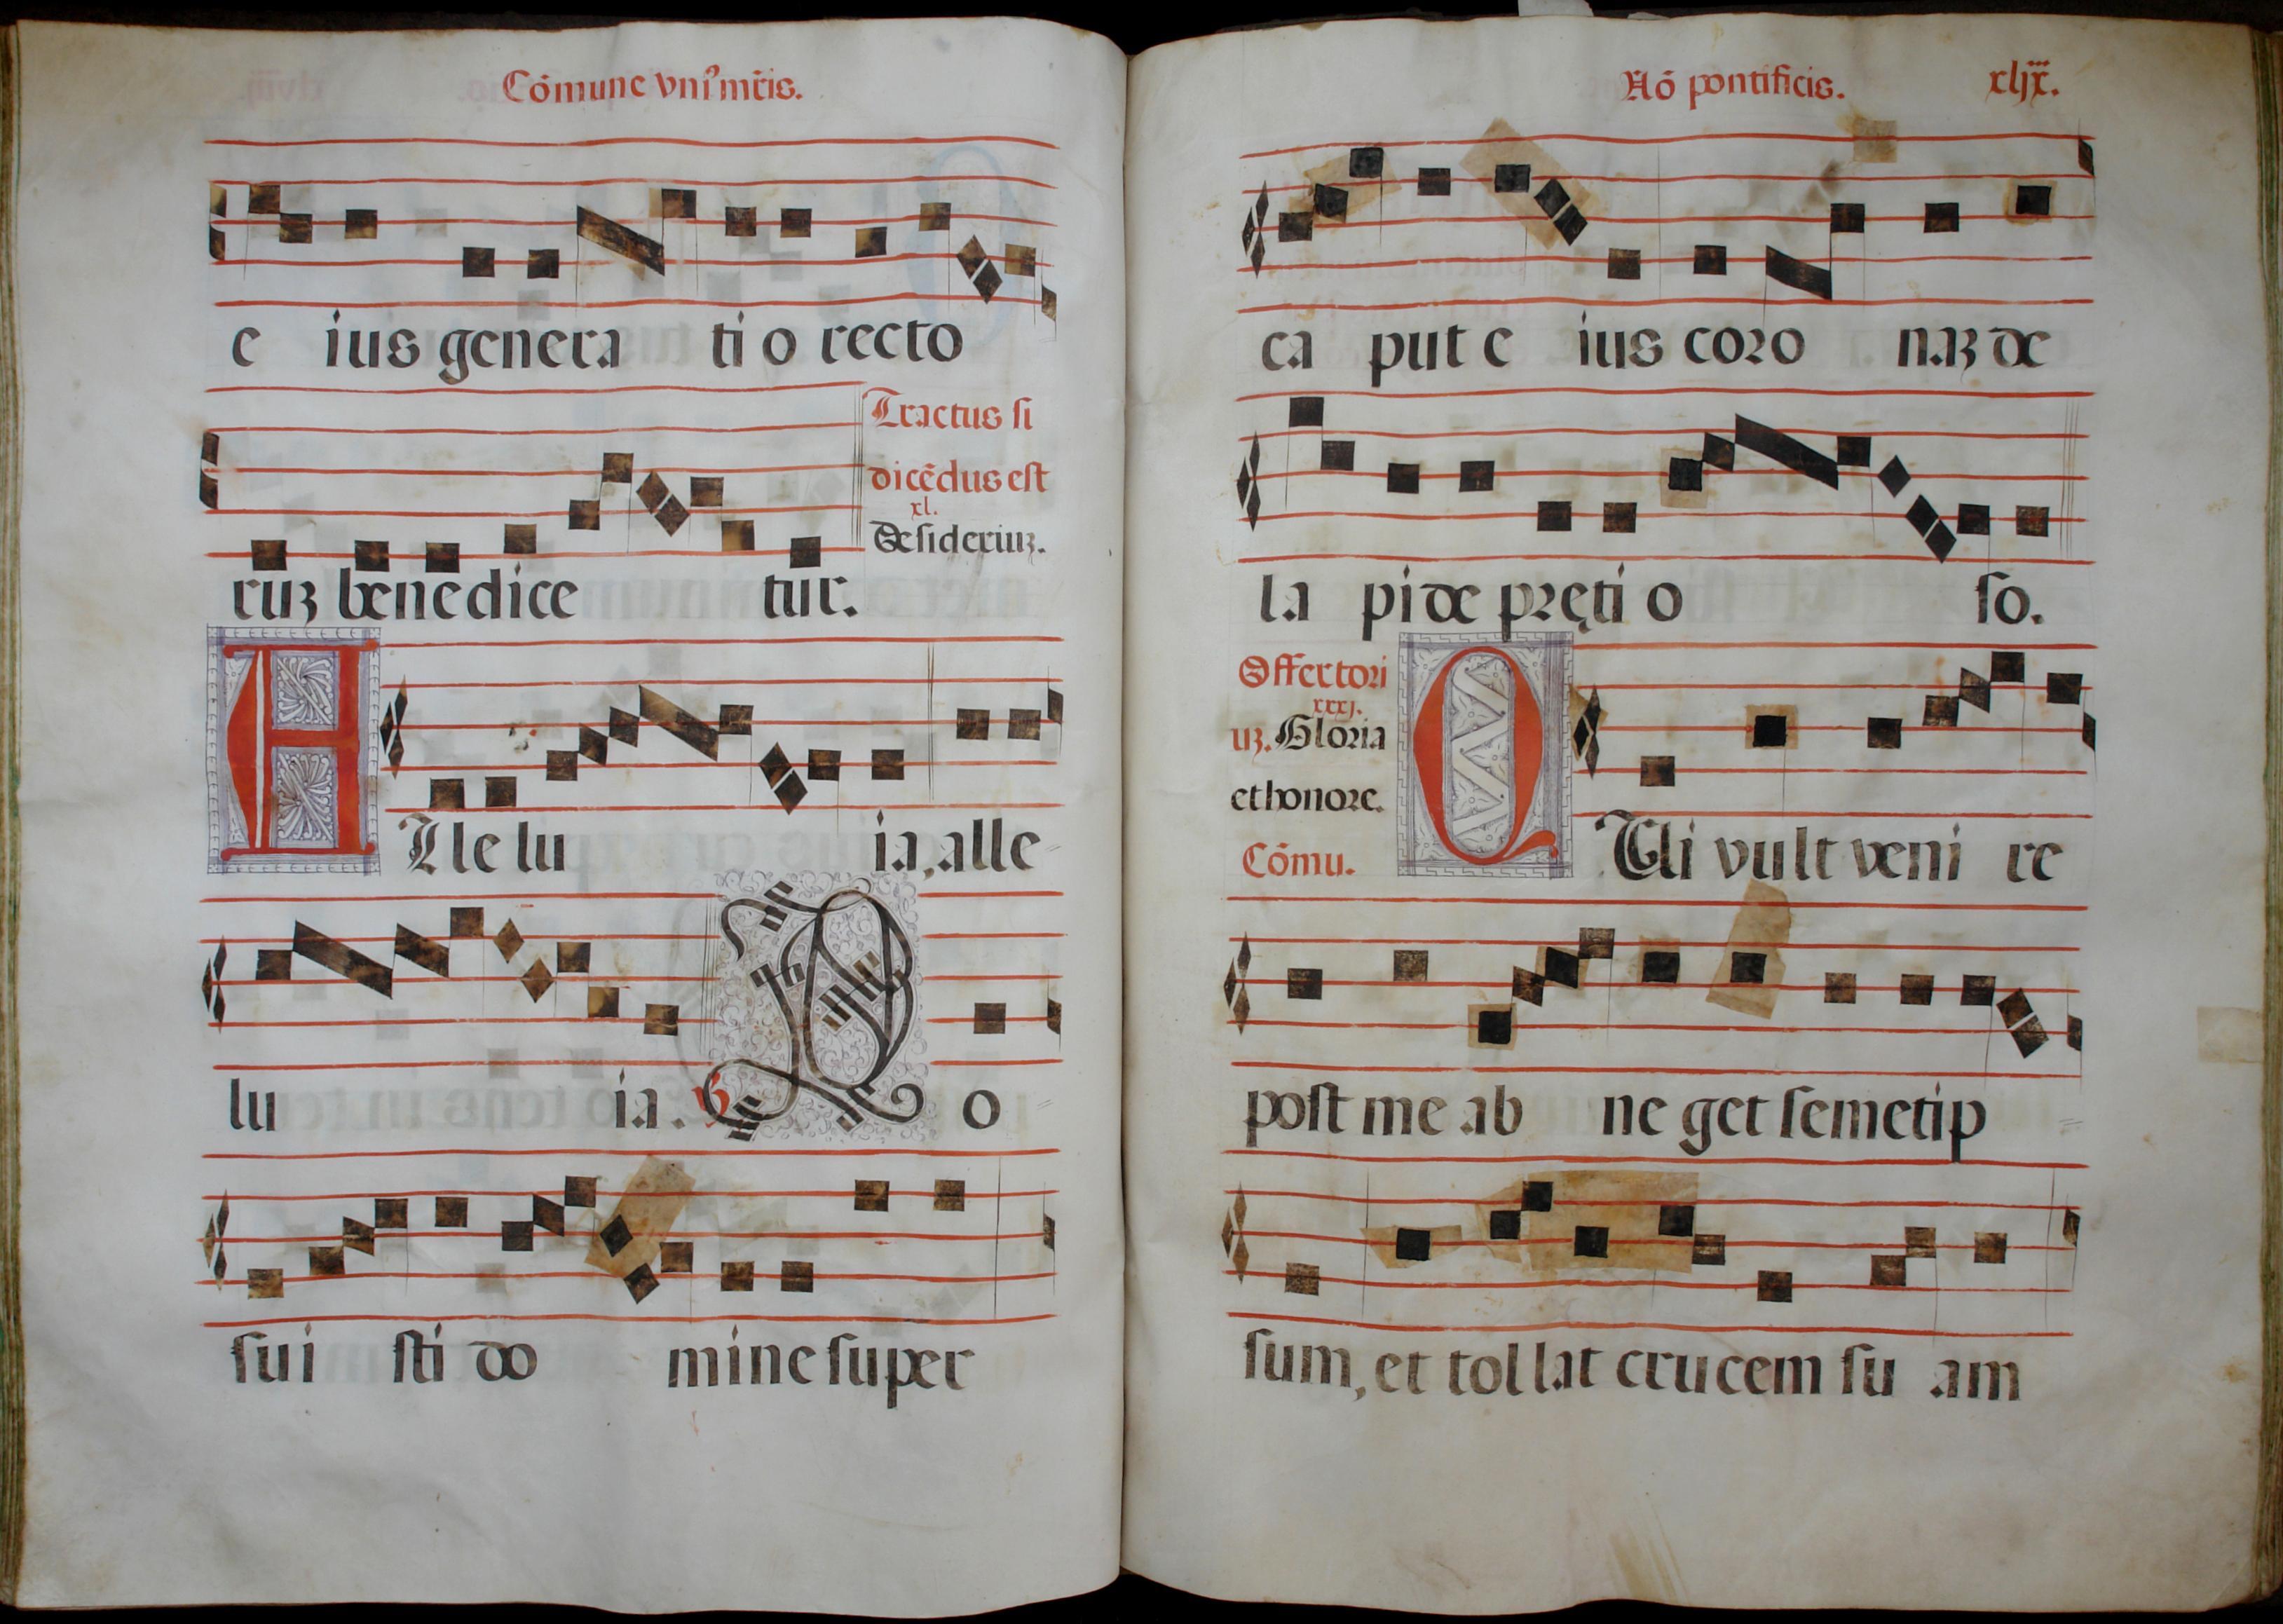 Cõmune vni⁹ mr̃is.
e ius genera ti o recto
ruʒ benedice tur.
Tractus si
dicẽdus est
xl.
Desideriuʒ.
A lle lu ia, alle
lu ia. ℣ P o
sui sti do mine super
Nõ pontificis. xlix.
ca put e ius coro naʒ de
la pide pręti o so.
Offertori
xxxj.
uʒ. Gloria
et honore.
Cõmu.
Q Ui vult veni re
post me ab ne get semetip
sum, et tollat crucem su am